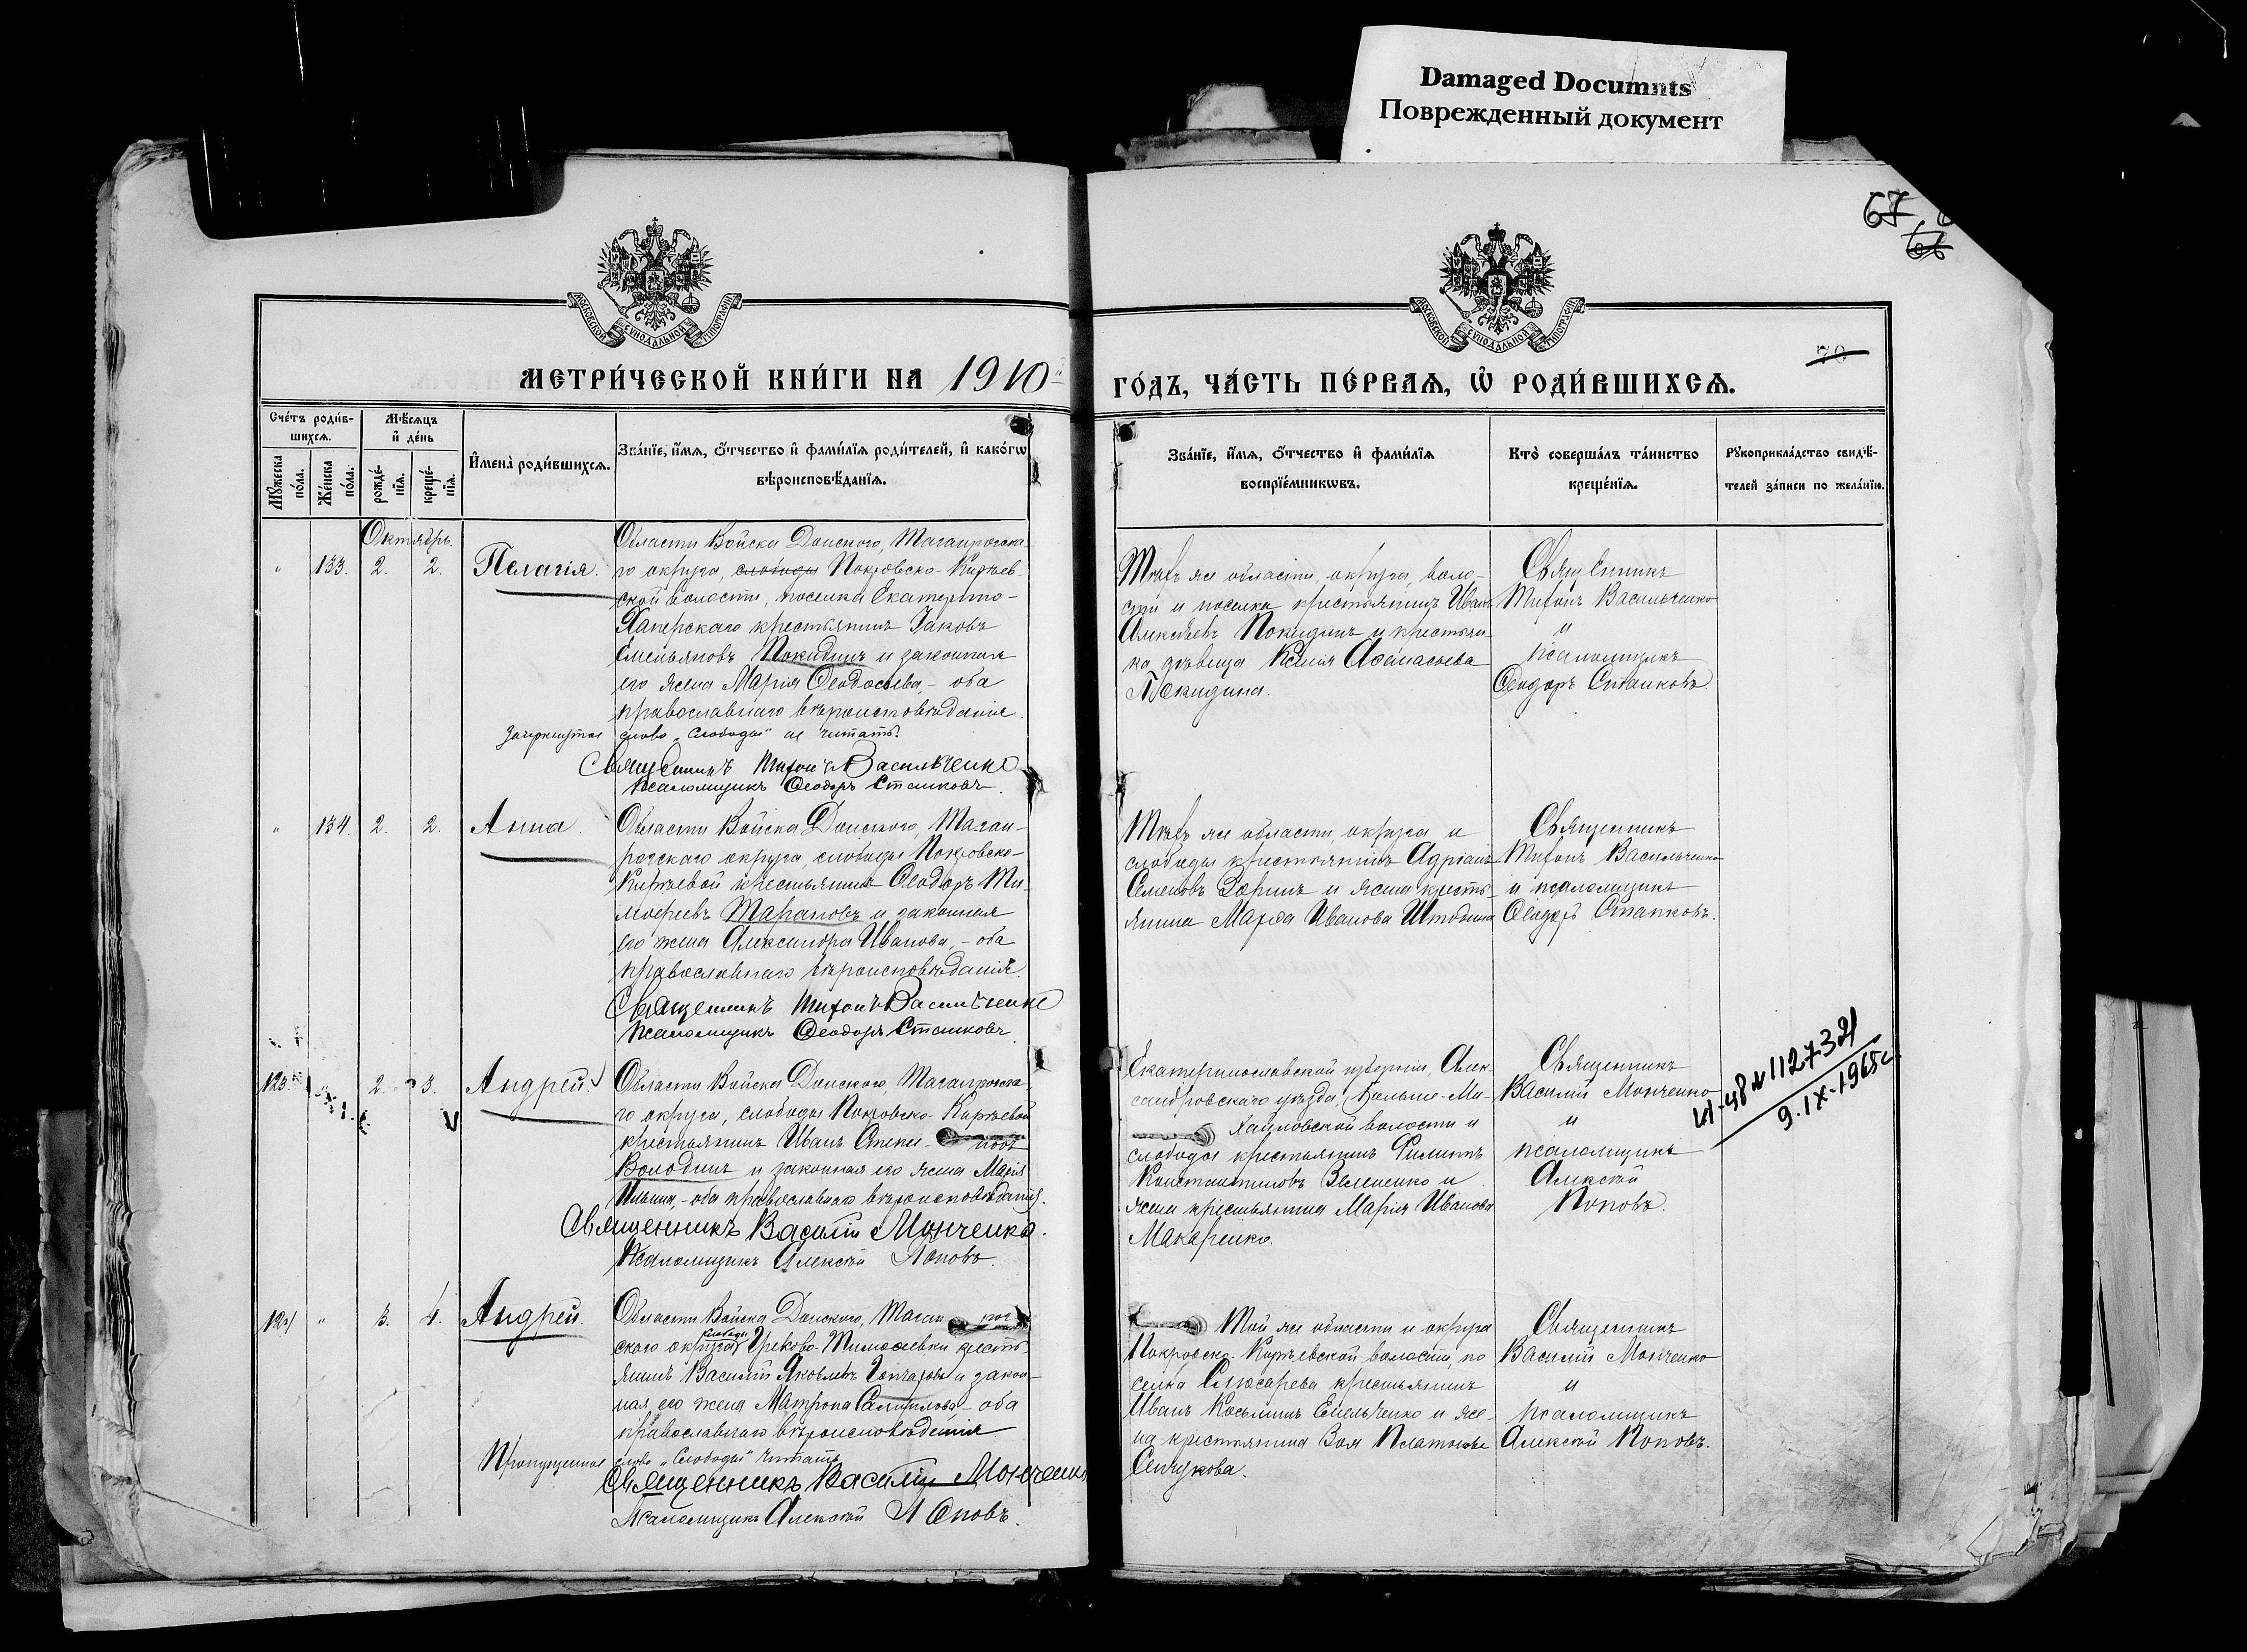 Damaged Documnts
Поврежденный документ
67
66
70
МОСКОВСКОЙ СѴНОДАЛЬНОЙ ТИПОГРАФІИ
МОСКОВСКОЙ СѴНОДАЛЬНОЙ ТИПОГРАФІИ
МЕТРИ́ЧЕСКОЙ КНИ́ГИ НА 1910
ГО́ДЪ, ЧА́СТЬ ПЕ́РВАѦ, Ѡ҆ РОДИ́ВШИХСѦ.
Сче́тъ роди́в-
шихсѧ.
Мѣ́сѧцъ
и҆ де́нь
Мꙋ́жеска по́ла.
Же́нска по́ла.
рожде́-
нїѧ.
креще́-
нїѧ.
И҆мена̀ роди́вшихсѧ.
Зва́нїе, и҆́мѧ, ѻ҆́тчество и҆ фами́лїѧ роди́телей, и҆ како́гѡ
вѣроисповѣ́данїѧ.
Зва́нїе, и҆́мѧ, ѻ҆́тчество и҆ фами́лїѧ
воспрїе́мникѡвъ.
Кто̀ соверша́лъ та́инство
креще́нїѧ.
Рꙋкоприкла́дство свидѣ́-
телей за́писи по жела́нїю.
Октябрь.
" 133. 2. 2. Пелагія.
Области Войска Донского, Таганрогска-
го округа, слободы Покровско-Киреев-
ской волости, поселка Екатерино-
Хаперскаго крестьянинъ Іаковъ
Емельяновъ Покидинъ и законная
его жена Марія Ѳеодосіева, - оба
православнаго вѣроисповѣданія.
Зачеркнутое слово „слободы" не читать.
Священникъ Тихонъ Васильченко
Псаломщикъ Ѳеодоръ Станковъ.
Тѣхъ же области, округа, воло-
сти и поселка крестьянинъ Иванъ
Алексѣевъ Покидинъ и крестьян-
ка дѣвица Ксенія Аѳанасьева
Покидина.
Священникъ
Тихонъ Васильченко
и
псаломщикъ
Ѳеодоръ Станковъ.
" 134. 2. 2. Анна.
Области Войска Донского, Таган-
рогскаго округа, слободы Покровско-
Кирѣевой крестьянинъ Ѳеодоръ Ти-
моѳеевъ Тарановъ и законная
его жена Александра Иванова, - оба
православнаго вѣроисповѣданія.
Священникъ Тихонъ Васильченко
Псаломщикъ Ѳеодоръ Станковъ.
Тѣхъ же области, округа и
слободы крестьянинъ Адріанъ
Семеновъ Зоринъ и жена кресть-
янина Марѳа Иванова Штодина
Священникъ
Тихонъ Васильченко
и псаломщикъ
Ѳеодоръ Станковъ.
123 2. 3. Андрей.
Области Войска Донского, Таганрогска-
го округа, слободы Покровско-Кирѣевой
крестьянинъ Иванъ Степа- новъ
Володинъ и законная его жена Марія
Ильина, - оба православнаго вѣроисповѣданія.
Священникъ Василій Монченко.
Псаломщикъ Алексѣй Поповъ.
Екатеринославской губерніи, Алек-
сандровскаго уѣзда, Больше-Ми-
хайловской волости и
слободы крестьянинъ Филиппъ
Константиновъ Зеленско и
жена крестьянина Марія Иванова
Макаренко.
Священникъ
Василій Монченко
и
псаломщикъ
Алексѣй
Поповъ.
№ 1127321
9.IX-1965г.
124 " 3. 4. Андрей.
Области Войска Донского, Таган рог
скаго округа, слободы Греково-Тимоѳеевки кресть-
янинъ Василій Яковлевъ Гончаровъ и закон-
ная его жена Матрона Самуилова, - оба
православнаго вѣроисповѣданія
Пропущенное слово „слободы" читать.
Священникъ Василій Монченко
Псаломщикъ Алексѣй Поповъ.
Той же области и округа
Покровско-Кирѣевской волости, по-
селка Слюсарева крестьянинъ
Иванъ Косьминъ Емельченко и же-
на крестьянина Зоя Платонова
Священникъ
Василій Монченко
и
псаломщикъ
Алексѣй Поповъ.